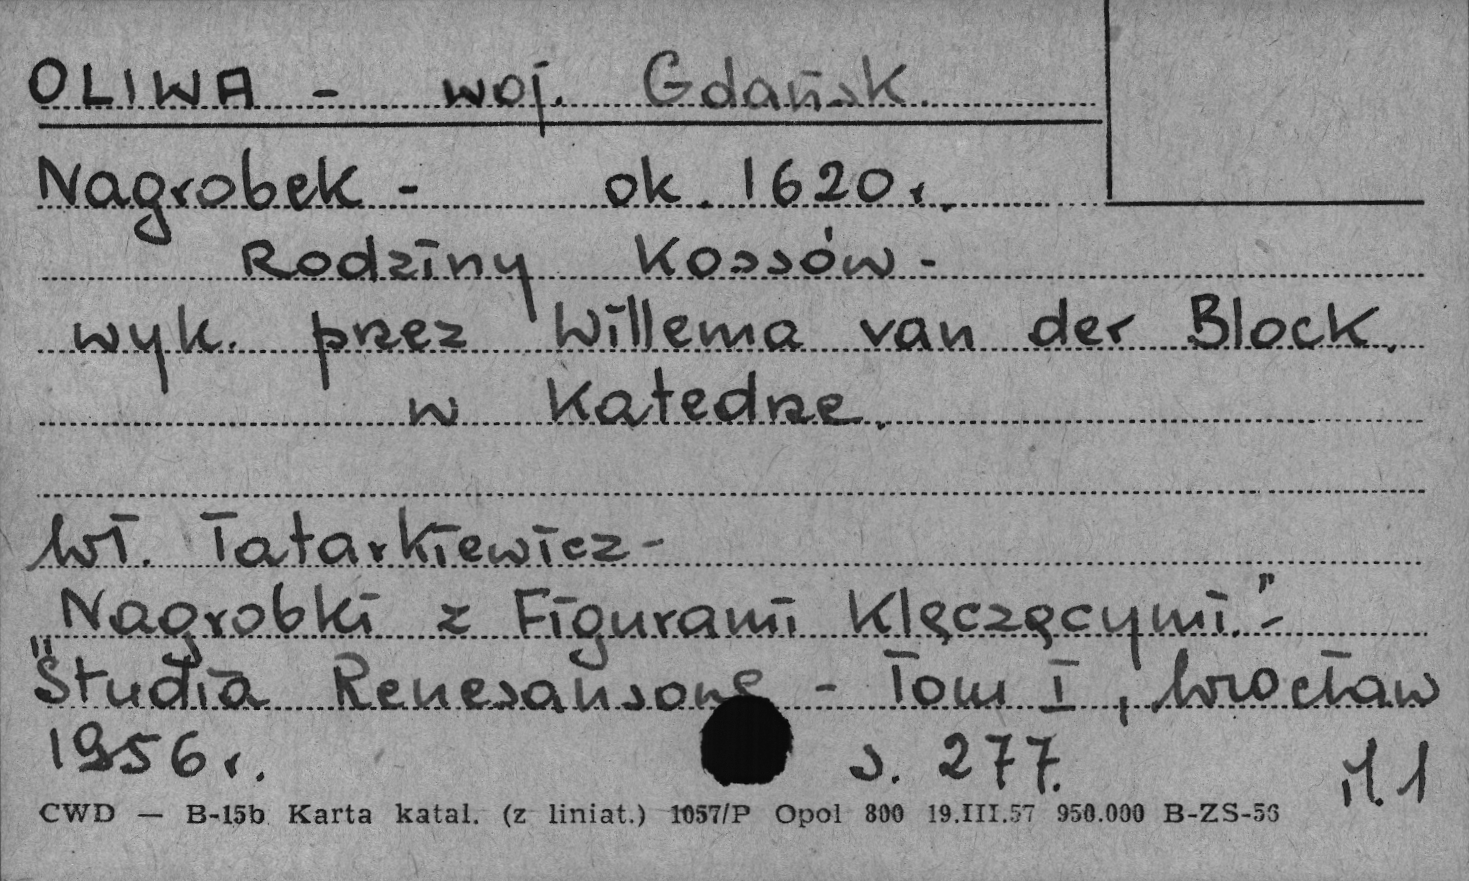 OLIWA - woj. Gdańsk.
Nagrobek - ok. 1620 r.
Rodziny Kossów -
wyk. przez Willema van der Block.
w Katedrze.
Wł. Tatarkiewicz -
"Nagrobki z Figurami Klęczącymi." -
Studia Renesansowe - Tom I, Wrocław
1956 r. s. 277. il. 1
CWD — B-15b Karta katal. (z liniat.) 1057/P Opol 800 19.III.57 950.000 B-ZS-56